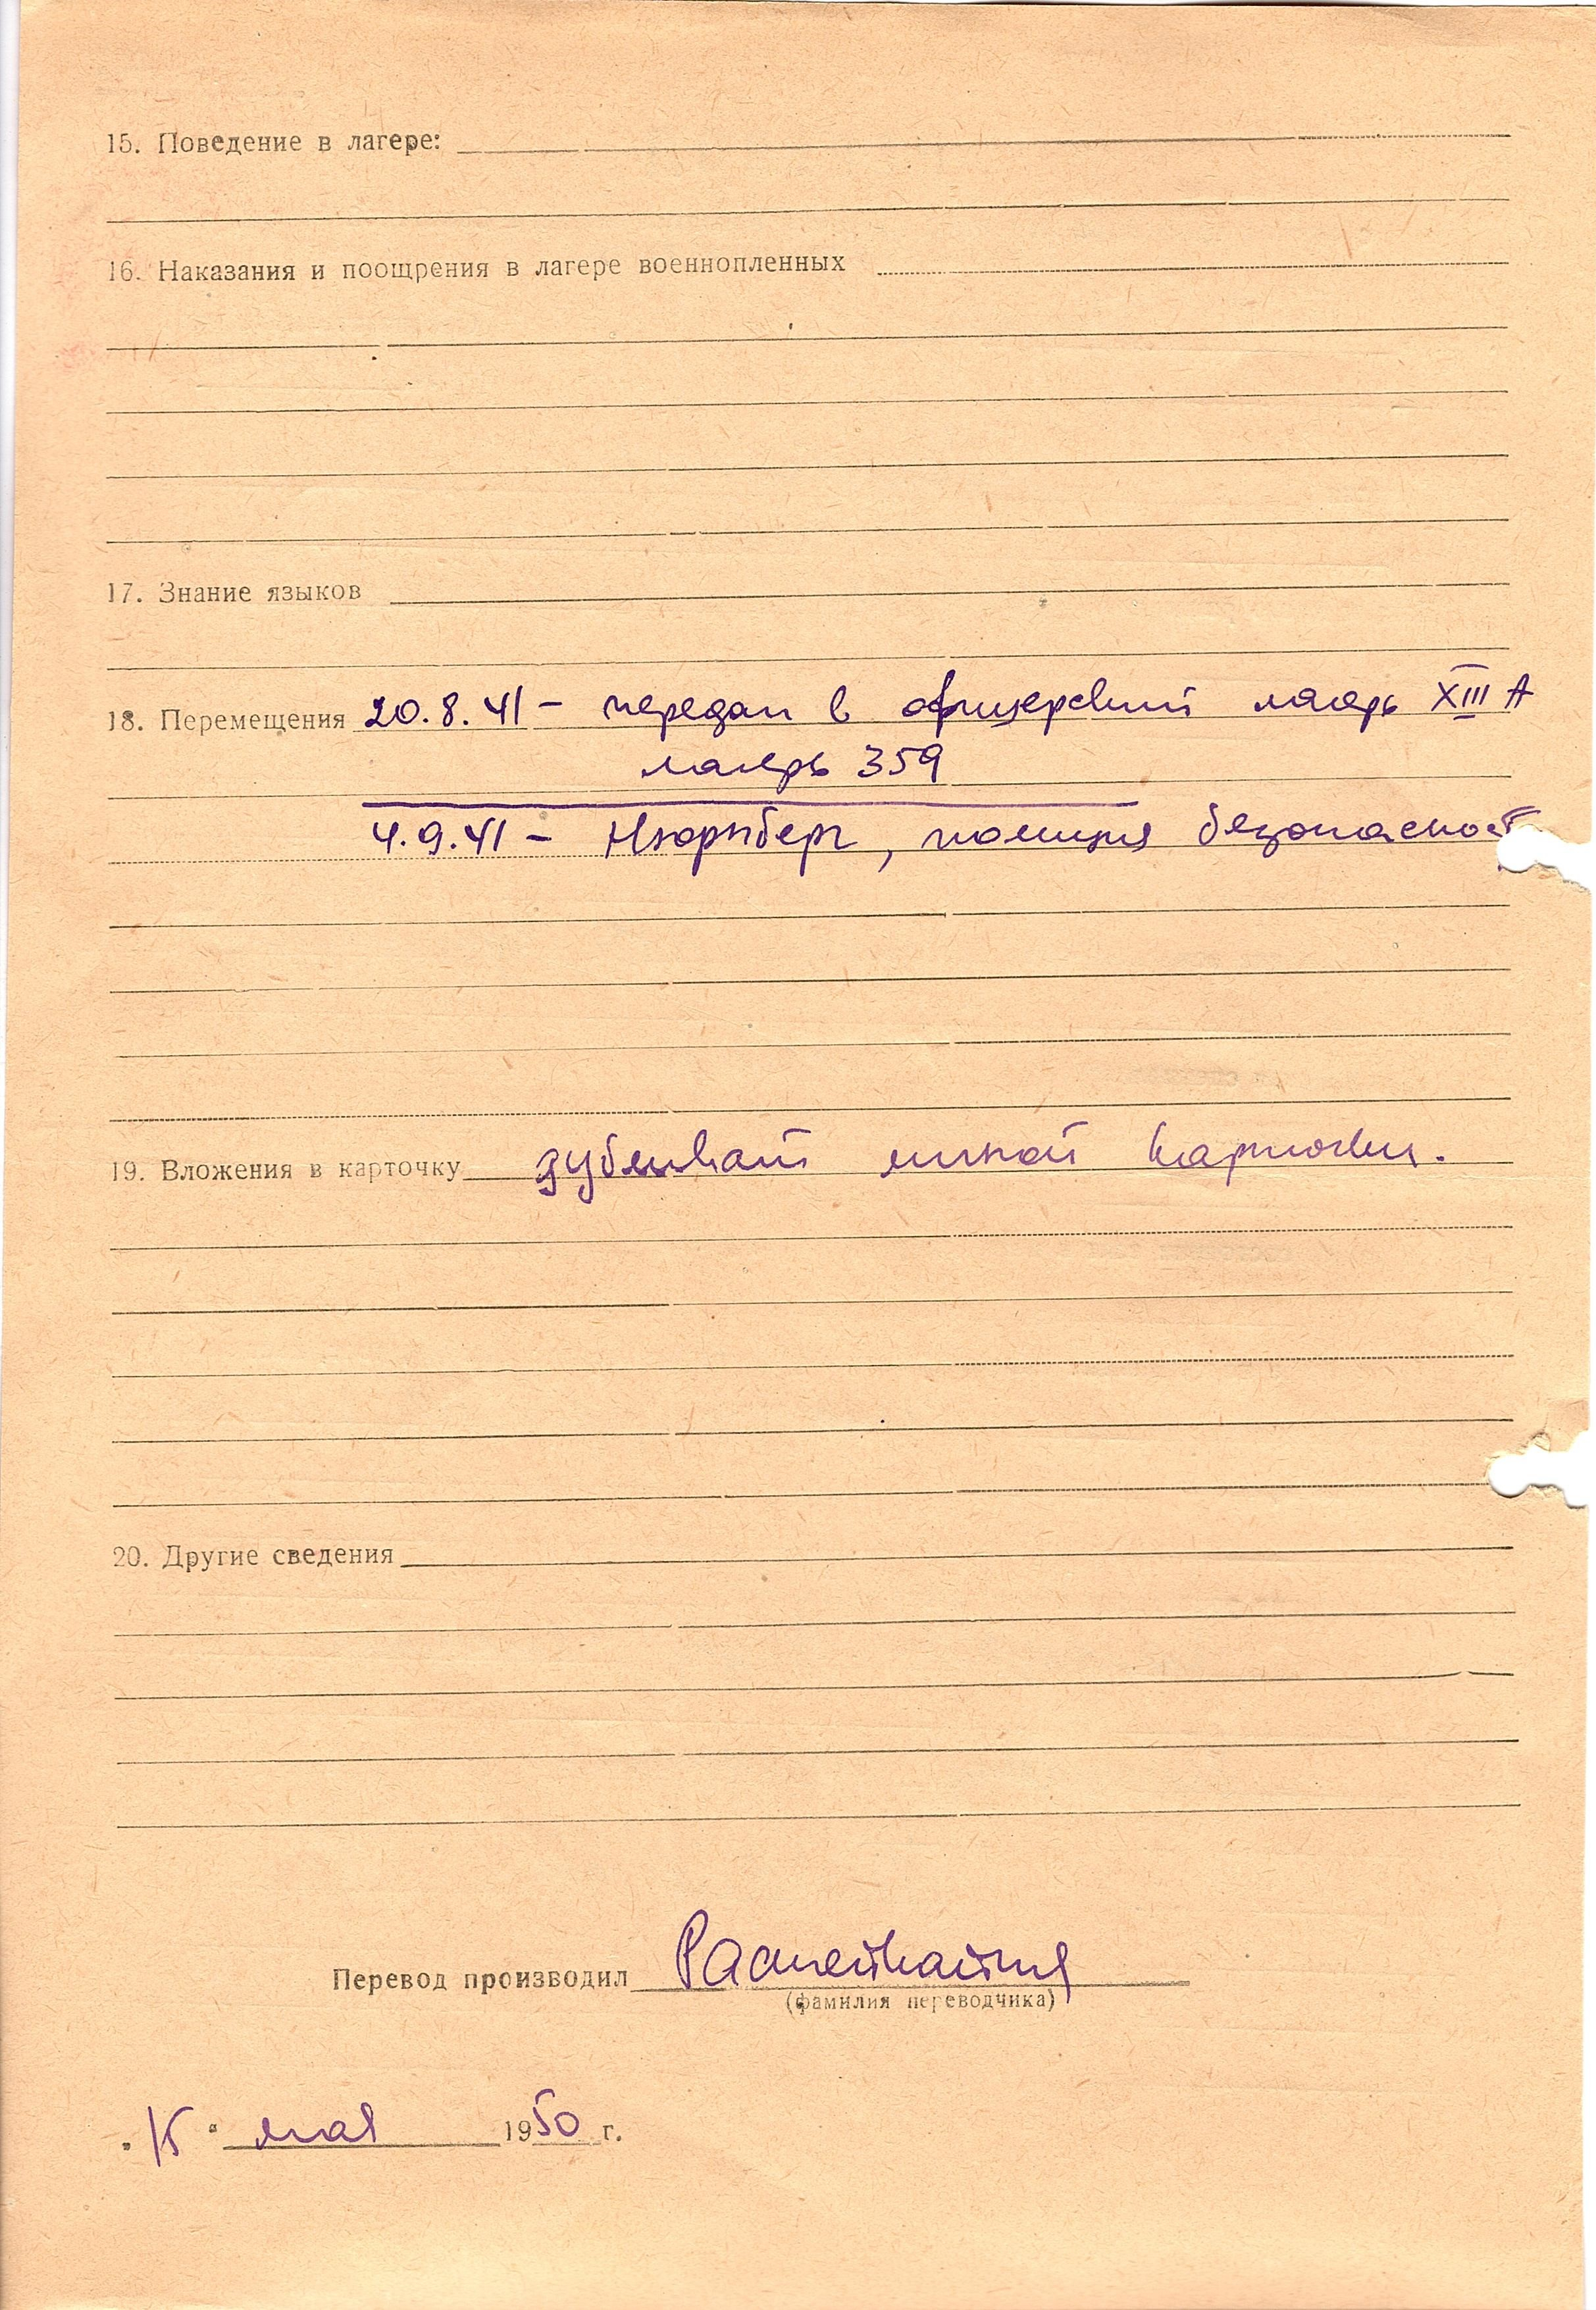 15. Поведение в лагере:
16. Наказания и поощрения в лагере военнопленных
17. Знание языков
18. Перемещения 20.8.41 – передан в офицерский лагерь XIII А
лагерь 359
4.9.41 – Нюрнберг, полиция безопасност
19. Вложения в карточку дубликат личной карточки.
20. Другие сведения
Перевод производил
(фамилия переводчика)
"15" мая 1950 г.